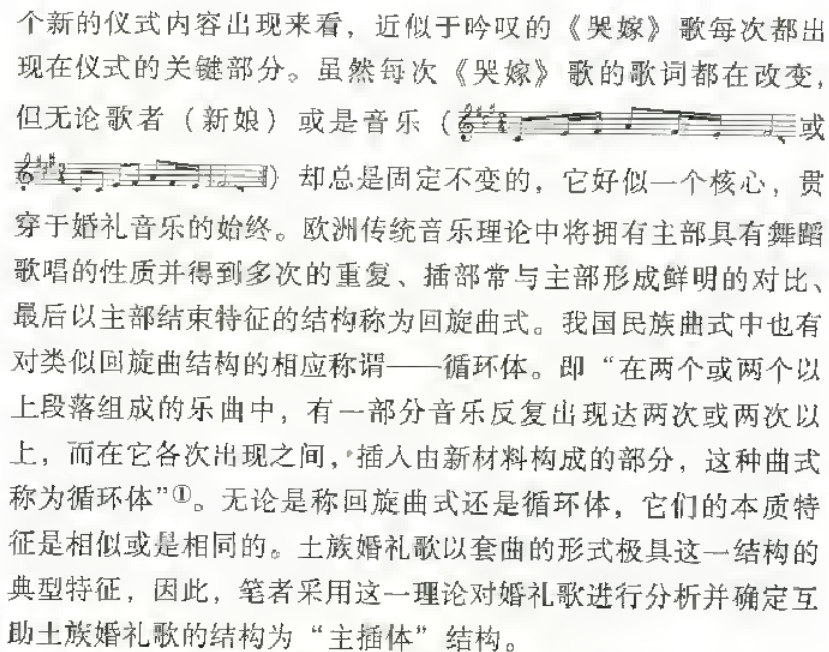 个新的仪式内容出现来看，近似于吟叹的《哭嫁》歌每次都出
现在仪式的关键部分。虽然每次《哭嫁》歌的歌词都在改变，
但无论歌者（新娘）或是音乐（或
）却总是固定不变的，它好似一个核心，贯
穿于婚礼音乐的始终。欧洲传统音乐理论中将拥有主部具有舞蹈
歌唱的性质并得到多次的重复、插部常与主部形成鲜明的对比、
最后以主部结束特征的结构称为回旋曲式。我国民族曲式中也有
对类似回旋曲结构的相应称谓——循环体。即“在两个或两个以
上段落组成的乐曲中，有一部分音乐反复出现达两次或两次以
上，而在它各次出现之间，插入由新材料构成的部分，这种曲式
称为循环体”①。无论是称回旋曲式还是循环体，它们的本质特
征是相似或是相同的。土族婚礼歌以套曲的形式极具这一结构的
典型特征，因此，笔者采用这一理论对婚礼歌进行分析并确定互
助土族婚礼歌的结构为“主插体”结构。